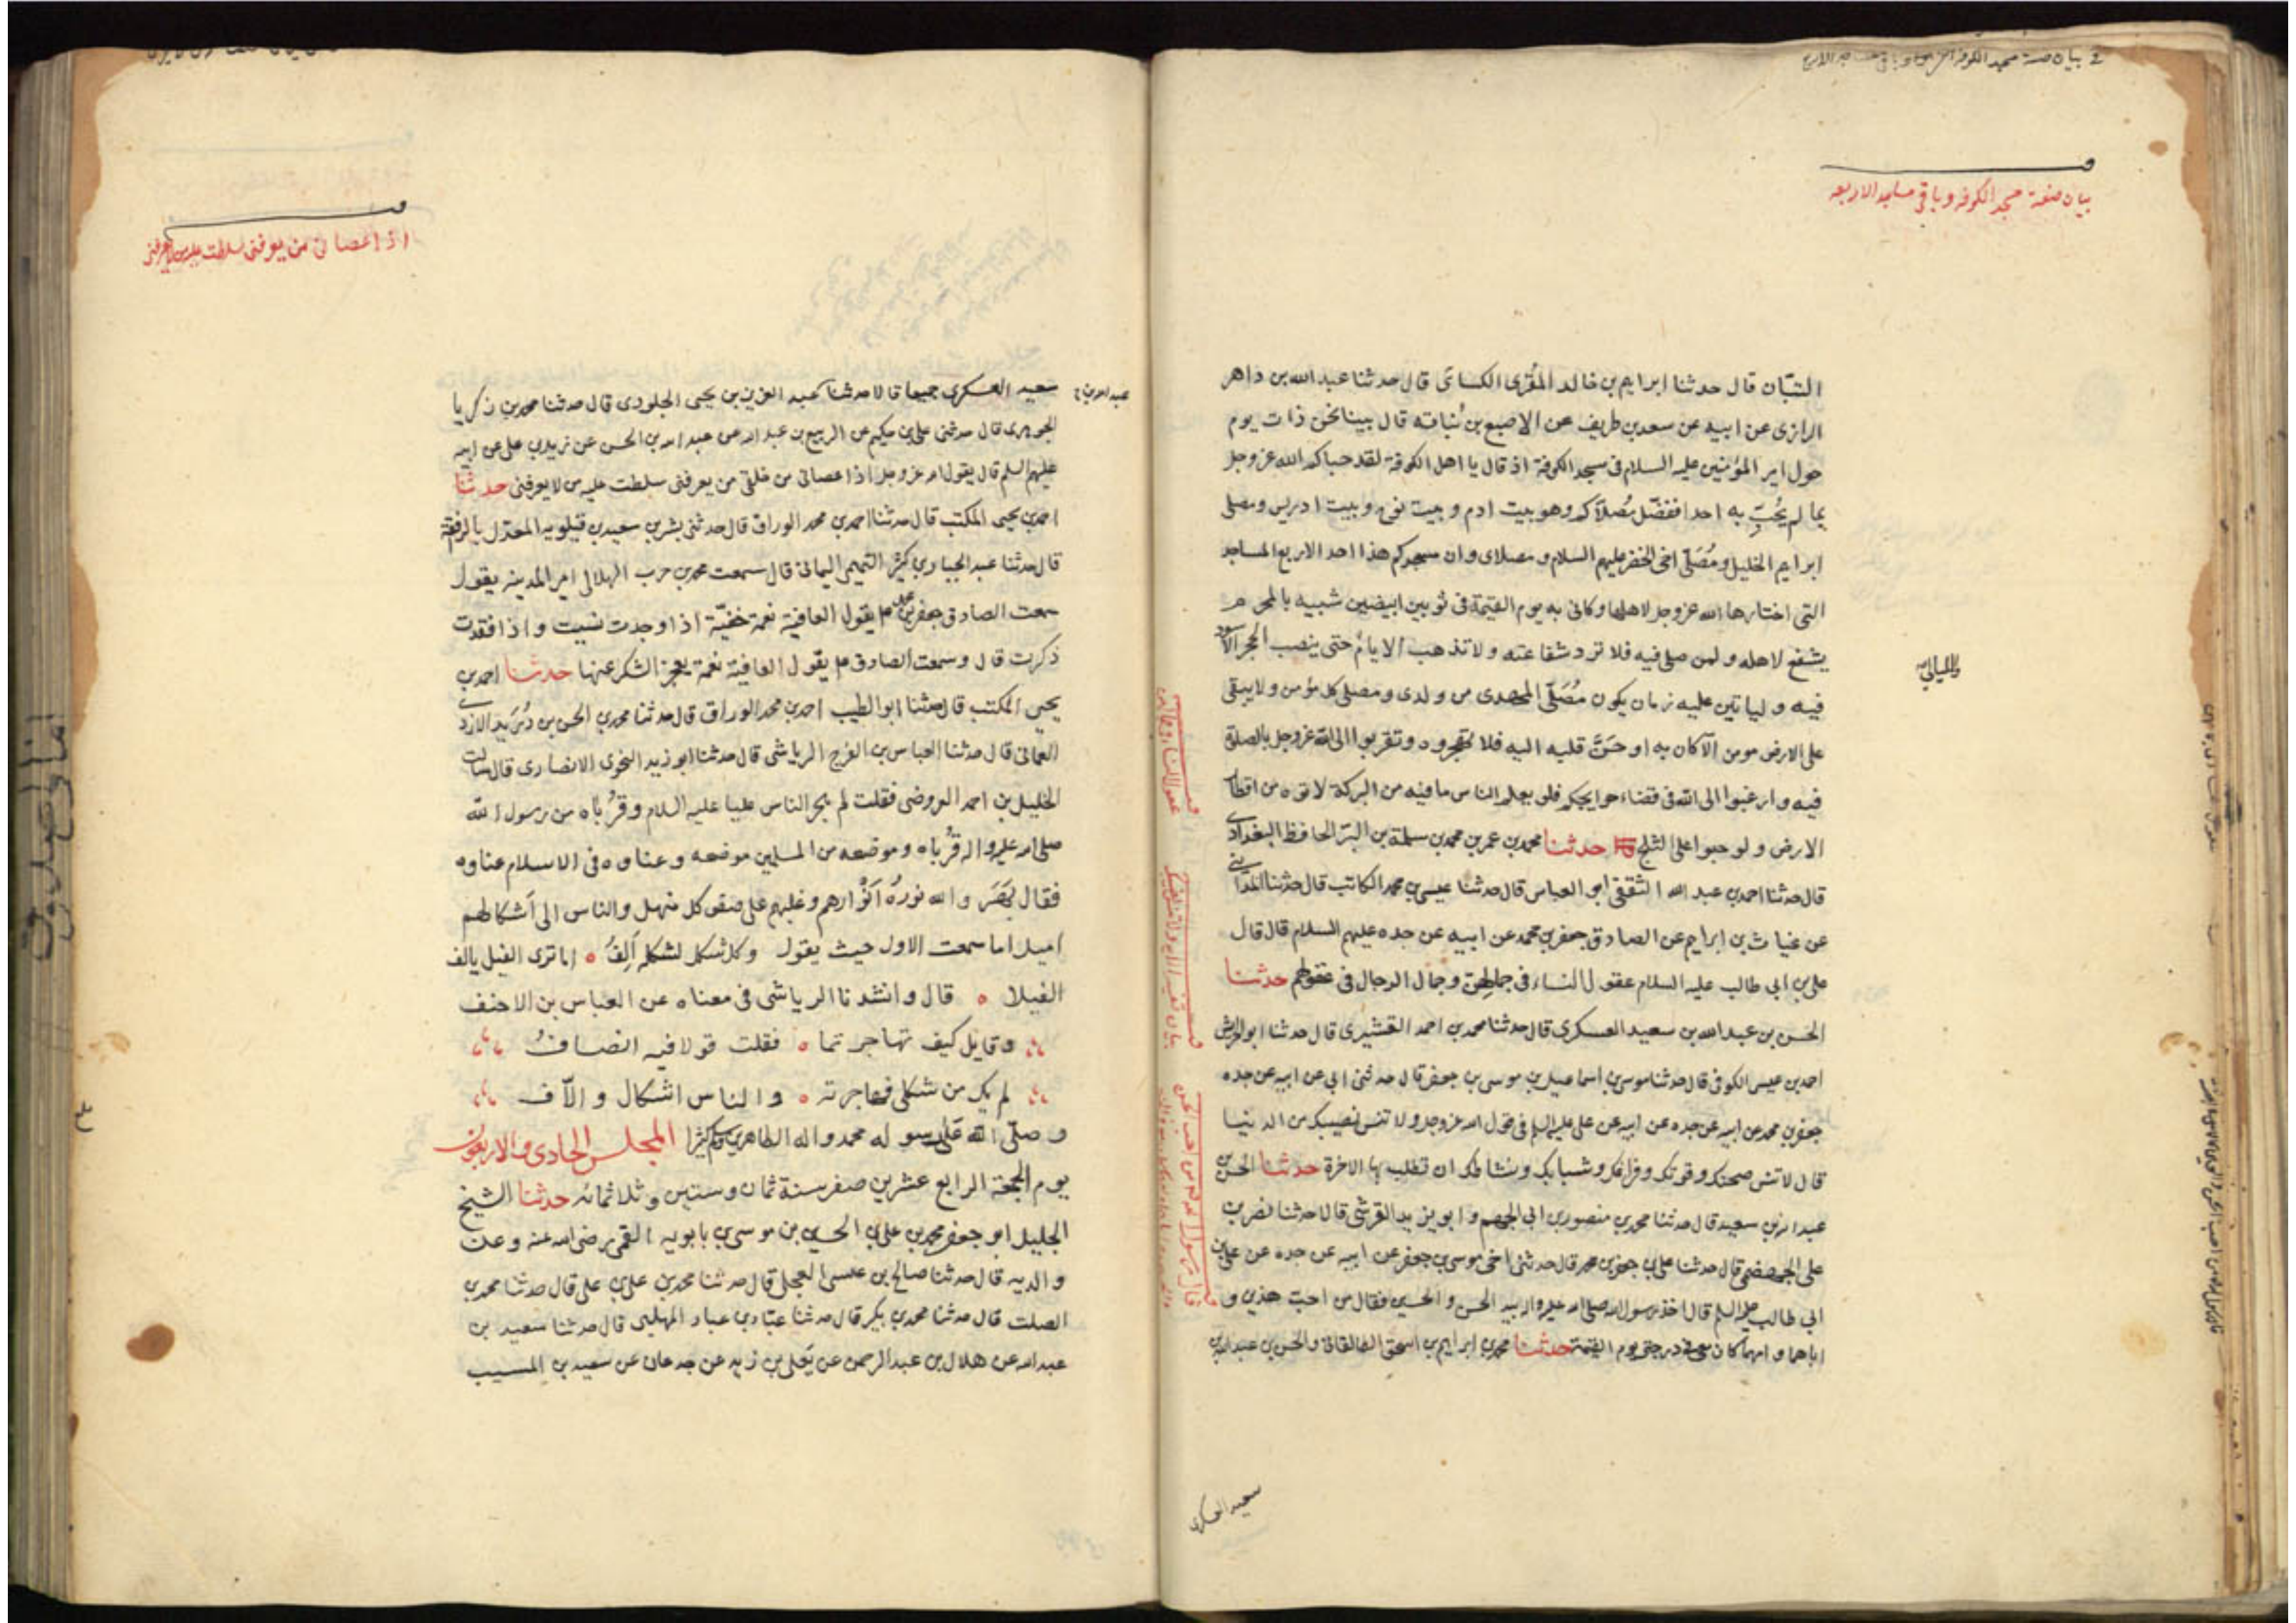 بيان صفة مسجد الكوفه وباقى مساجد الاربعه
التبّان قال حدثنا ابراهيم بن خالد المقرى الكسائى قال حدثنا عبد الله بن داهر
الرازى عن ابيه عن سعد بن طريف عن الاصبغ بن نُباته قال بينا نحن ذات يوم
حول امير المؤمنين عليه السلام فى مسجد الكوفة اذ قال يا اهل الكوفة لقد حباكم الله عز وجل
بما لم يُحبِ به احدا ففضّل مُصلاّكم وهو بيت ادم وبيت نوح وبيت ادريس ومصلى
ابراهيم الخليل ومُصَلّى اخى الخضر عليهم السلام ومصلاى وان مسجدكم هذا احد الاربع المساجد
التى اختارها الله عز وجل لاهلها وكانى به يوم القيمة فى ثوبين ابيضين شبيه بالمحرم
يشفع لاهله ولمن صلى فيه فلا ترد شفاعته ولا تذهب الايام حتى ينصب الحجر الاسود
والليالى
فيه ولياتين عليه زمان يكون مُصَلّى المهدى من ولدى ومصلى كل مؤمن ولا يبقى
على الارض مومن الا كان به او حَنَّ قلبه اليه فلا تهجروه وتقربوا الى الله عز وجل بالصلوة
فيه وارغبوا الى الله فى قضاء حوايجكم فلو يعلم الناس ما فيه من البركة لاتوه من اقطار
الارض ولو حبوا على الثلج حدثنا محمد بن عمر بن محمد بن سلمة بن البرّ الحافظ البغدادى
قال حدثنا احمد بن عبد الله الثقفى ابو العباس قال حدثنا عيسى بن محمد الكاتب قال حدثنا المداينى
عن غياث بن ابراهيم عن الصادق جعفر بن محمد عن ابيه عن جده عليهم السلام قال قال
على بن ابى طالب عليه السلام عقول النساء فى جمالهن وجمال الرجال فى عقولهم حدثنا
الحسن بن عبد الله بن سعيد العسكرى قال حدثنا محمد بن احمد القشيرى قال حدثنا ابو الحريش
احمد بن عيسى الكوفى قال حدثنا موسى بن اسماعيل بن موسى بن جعفر قال حدثنى ابى عن ابيه عن جده
جعفر بن محمد عن ابيه عن جده عن ابيه عن على عليه السلم فى قول الله عز وجل ولا تنس نصيبك من الدنيا
قال لا تنس صحتك وقوتك وفراغك وشبابك ونشاطك ان تطلب بها الاخرة حدثنا الحسن بن
عبد الله بن سعيد قال حدثنا محمد بن منصور بن ابى الجهم وابو يزيد القرشى قالا حدثنا نصر بن
على الجهضمى قال حدثنا على بن جعفر بن محمد قال حدثنى اخى موسى بن جعفر عن ابيه عن جده عن على بن
ابى طالب عليه السلم قال اخذ رسول الله صلى الله عليه واله بيد الحسن والحسين فقال من احب هذين و
اباهما وامهما كان معى فى درجتى يوم القيمة حدثنا محمد بن ابراهيم بن اسحق الطالقانى والحسن بن عبد الله بن
سعيد العسكرى
اذا عصانى من يعرفنى سلطت عليه من لا يعرفنى
سعيد العسكرى جميعا قالا حدثنا عبد العزيز بن يحيى الجلودى قال حدثنا محمد بن زكريا
الجوهرى قال حدثنى على بن حكيم عن الربيع بن عبد الله عن عبد الله بن الحسن عن زيد بن على عن ابيه
عليهم السلم قال يقول الله عز وجل اذا عصانى من خلقى من يعرفنى سلطت عليه من لا يعرفنى حدثنا
احمد بن يحيى المكتب قال حدثنا احمد بن محمد الوراق قال حدثنى بشر بن سعيد بن قيلويه المعدل بالرافقة
قال حدثنا عبد الجبار بن كثير التميمى اليمانى قال سمعت محمد بن حرب الهلالى امير المدينه يقول
سمعت الصادق جعفر بن محمد ع يقول العافية نعمة خفيّة اذا وجدت نسيت واذا فقدت
ذكرت قال وسمعت الصادق ع يقول العافية نعمة يعجز الشكر عنها حدثنا احمد بن
يحيى المكتب قال حدثنا ابو الطيب احمد بن محمد الوراق قال حدثنا محمد بن الحسن بن دُرَيد الازدى
العمانى قال حدثنا العباس بن الفرج الرياشى قال حدثنا ابو زيد النحوى الانصارى قال سالت
الخليل بن احمد العروضى فقلت لم هجر الناس عليا عليه السلام وقُرباه من رسول الله
صلى الله عليه واله قُرباه وموضعه من المسلمين موضعه وعناوه فى الاسلام عناوه
فقال بَهَرَ والله نورُه اَنْوارهم وغلبهم على صفو كل منهل والناس الى اَشكالهم
اميل اما سمعت الاول حيث يقول وكل شكل لشكله اَلِفُ ه اما ترى الفيل يالف
الفيلا ه قال وانشدنا الرياشى فى معناه عن العباس بن الاحنف
وقايل كيف تهاجرتما ه فقلت قولا فيه انصافُ
لم يك من شكلى فهاجرته ه والناس اشكال والاّف
وصلى الله على رسوله محمد واله الطاهرين وسلم كثيرا المجلس الحادى والاربعون
يوم الجمعة الرابع عشر من صفر سنة ثمان وستين وثلاثمائه حدثنا الشيخ
الجليل ابو جعفر محمد بن على بن الحسين بن موسى بن بابويه القمى رضى الله عنه وعن
والديه قال حدثنا صالح بن عيسى العجلى قال حدثنا محمد بن على بن على قال حدثنا محمد بن
الصلت قال حدثنا محمد بن بكير قال حدثنا عبّاد بن عباد المهلبى قال حدثنا سعيد بن
عبد الله عن هلال بن عبد الرحمن عن يَعلى بن زيد عن جدعان عن سعيد بن المسيب